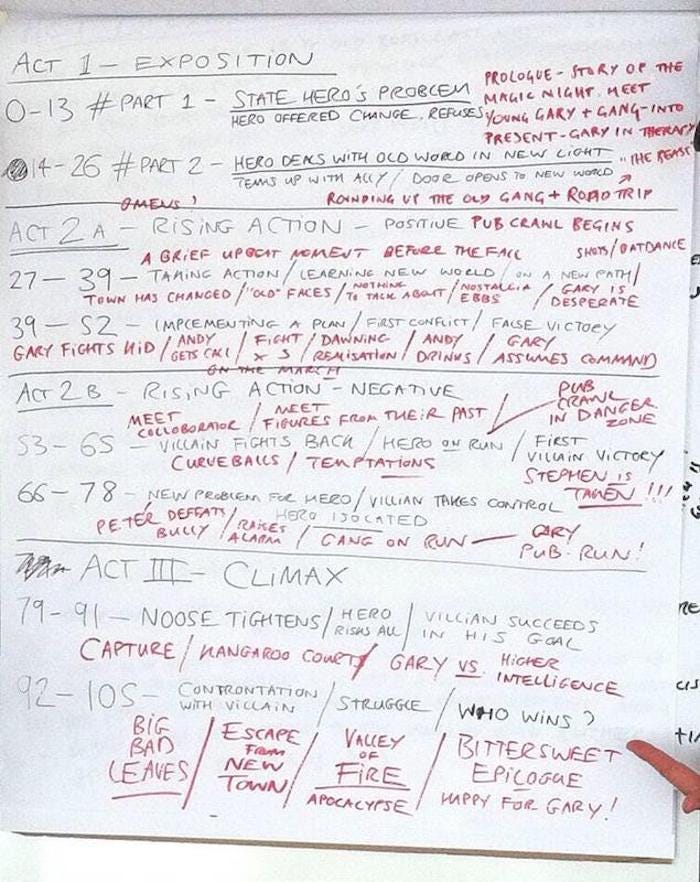 ACT 1 - EXPOSITION
0-13 # PART 1 - STATE HERO'S PROBLEM
HERO OFFERED CHANGE, REFUSES
PROLOGUE - STORY OF THE
MAGIC NIGHT. MEET
YOUNG GARY + GANG - INTO
PRESENT - GARY IN THERAPY
14-26 # PART 2 - HERO DEALS WITH OLD WORLD IN NEW LIGHT
TEAMS UP WITH ALLY / DOOR OPENS TO NEW WORLD
"THE
OMENS?
ROUNDING UP THE OLD GANG + ROAD TRIP
ACT 2A - RISING ACTION - POSITIVE PUB CRAWL BEGINS
A BRIEF UPBEAT MOMENT BEFORE THE FALL
SHOTS/
27-39 - TAKING ACTION / LEARNING NEW WORLD / ON A NEW PATH /
TOWN HAS CHANGED / "OLD" FACES / NOTHING TO TALK ABOUT / NOSTALGIA EBBS / GARY IS DESPERATE
39-52 - IMPLEMENTING A PLAN / FIRST CONFLICT / FALSE VICTORY
GARY FIGHTS KID / ANDY GETS CALL / FIGHT X 5 / DAWNING REALISATION / ANDY DRINKS / GARY ASSUMES COMMAND
ON THE MARCH
ACT 2B - RISING ACTION - NEGATIVE
PUB
CRAWL
IN DANGER
ZONE
MEET COLLOBORATOR / MEET FIGURES FROM THEIR PAST
53-65 - VILLAIN FIGHTS BACK / HERO ON RUN / FIRST VILLAIN VICTORY
CURVEBALLS / TEMPTATIONS
STEPHEN IS
TAKEN!!!
66-78 - NEW PROBLEM FOR HERO / VILLIAN TAKES CONTROL
HERO ISOLATED
PETER DEFEATS BULLY / RAISES ALARM / GANG ON RUN - GARY PUB-RUN!
ACT III - CLIMAX
79-91 - NOOSE TIGHTENS / HERO RISKS ALL / VILLIAN SUCCEEDS IN HIS GOAL
CAPTURE / KANGAROO COURT / GARY VS. HIGHER INTELLIGENCE
92-105 - CONFRONTATION WITH VILLAIN / STRUGGLE / WHO WINS?
BIG BAD LEAVES / ESCAPE FROM NEW TOWN / VALLEY OF FIRE APOCALYPSE / BITTERSWEET EPILOGUE HAPPY FOR GARY!